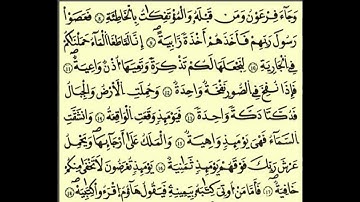 وَجَآءَ فِرْعَوْنُ وَمَن قَبْلَهُۥ وَالْمُوتَفِكَٰتُ بِالْخَاطِئَةِ ٨ فَعَصَوْا
رَسُولَ رَبِّهِمْ فَأَخَذَهُمْ أَخْذَةً رَّابِيَةً ٩ إِنَّا لَمَّا طَغَا الْمَآءُ حَمَلْنَٰكُمْ
فِي الْجَارِيَةِ ١٠ لِنَجْعَلَهَا لَكُمْ تَذْكِرَةً وَتَعِيَهَا أُذُنٌ وَٰعِيَةٌ ١١
فَإِذَا نُفِخَ فِي الصُّورِ نَفْخَةٌ وَٰحِدَةٌ ١٢ وَحُمِلَتِ الْأَرْضُ وَالْجِبَالُ
فَدُكَّتَا دَكَّةً وَٰحِدَةً ١٣ فَيَوْمَئِذٍ وَقَعَتِ الْوَاقِعَةُ ١٤ وَانشَقَّتِ
السَّمَآءُ فَهِيَ يَوْمَئِذٍ وَاهِيَةٌ ١٥ وَالْمَلَكُ عَلَىٰ أَرْجَآئِهَا وَيَحْمِلُ
عَرْشَ رَبِّكَ فَوْقَهُمْ يَوْمَئِذٍ ثَمَٰنِيَةٌ ١٦ يَوْمَئِذٍ تُعْرَضُونَ لَا تَخْفَىٰ مِنكُمْ
خَافِيَةٌ ١٧ فَأَمَّا مَنْ أُوتِيَ كِتَٰبَهُۥ بِيَمِينِهِۦ فَيَقُولُ هَآؤُمُ اقْرَءُوا كِتَٰبِيَهْ ١٨